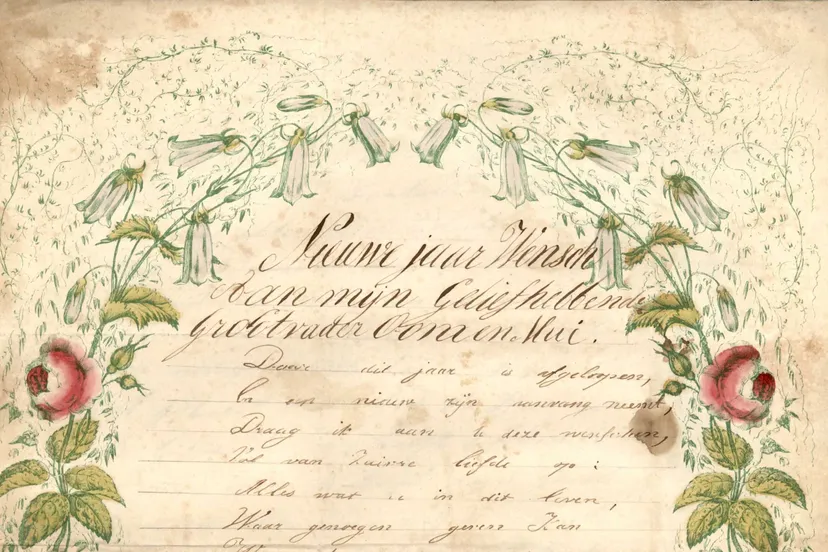 Nieuwe jaar Winsch
Aan mijn Geliefhebbende
Grootvader Oom en Mui.
Daar dit jaar is afgeloopen,
En een nieuw zijn aanvang neemt,
Draag ik aan u deze wenschen,
Vol van zuivre liefde op:
Alles wat u in dit leven,
Waar genoegen geven Kan